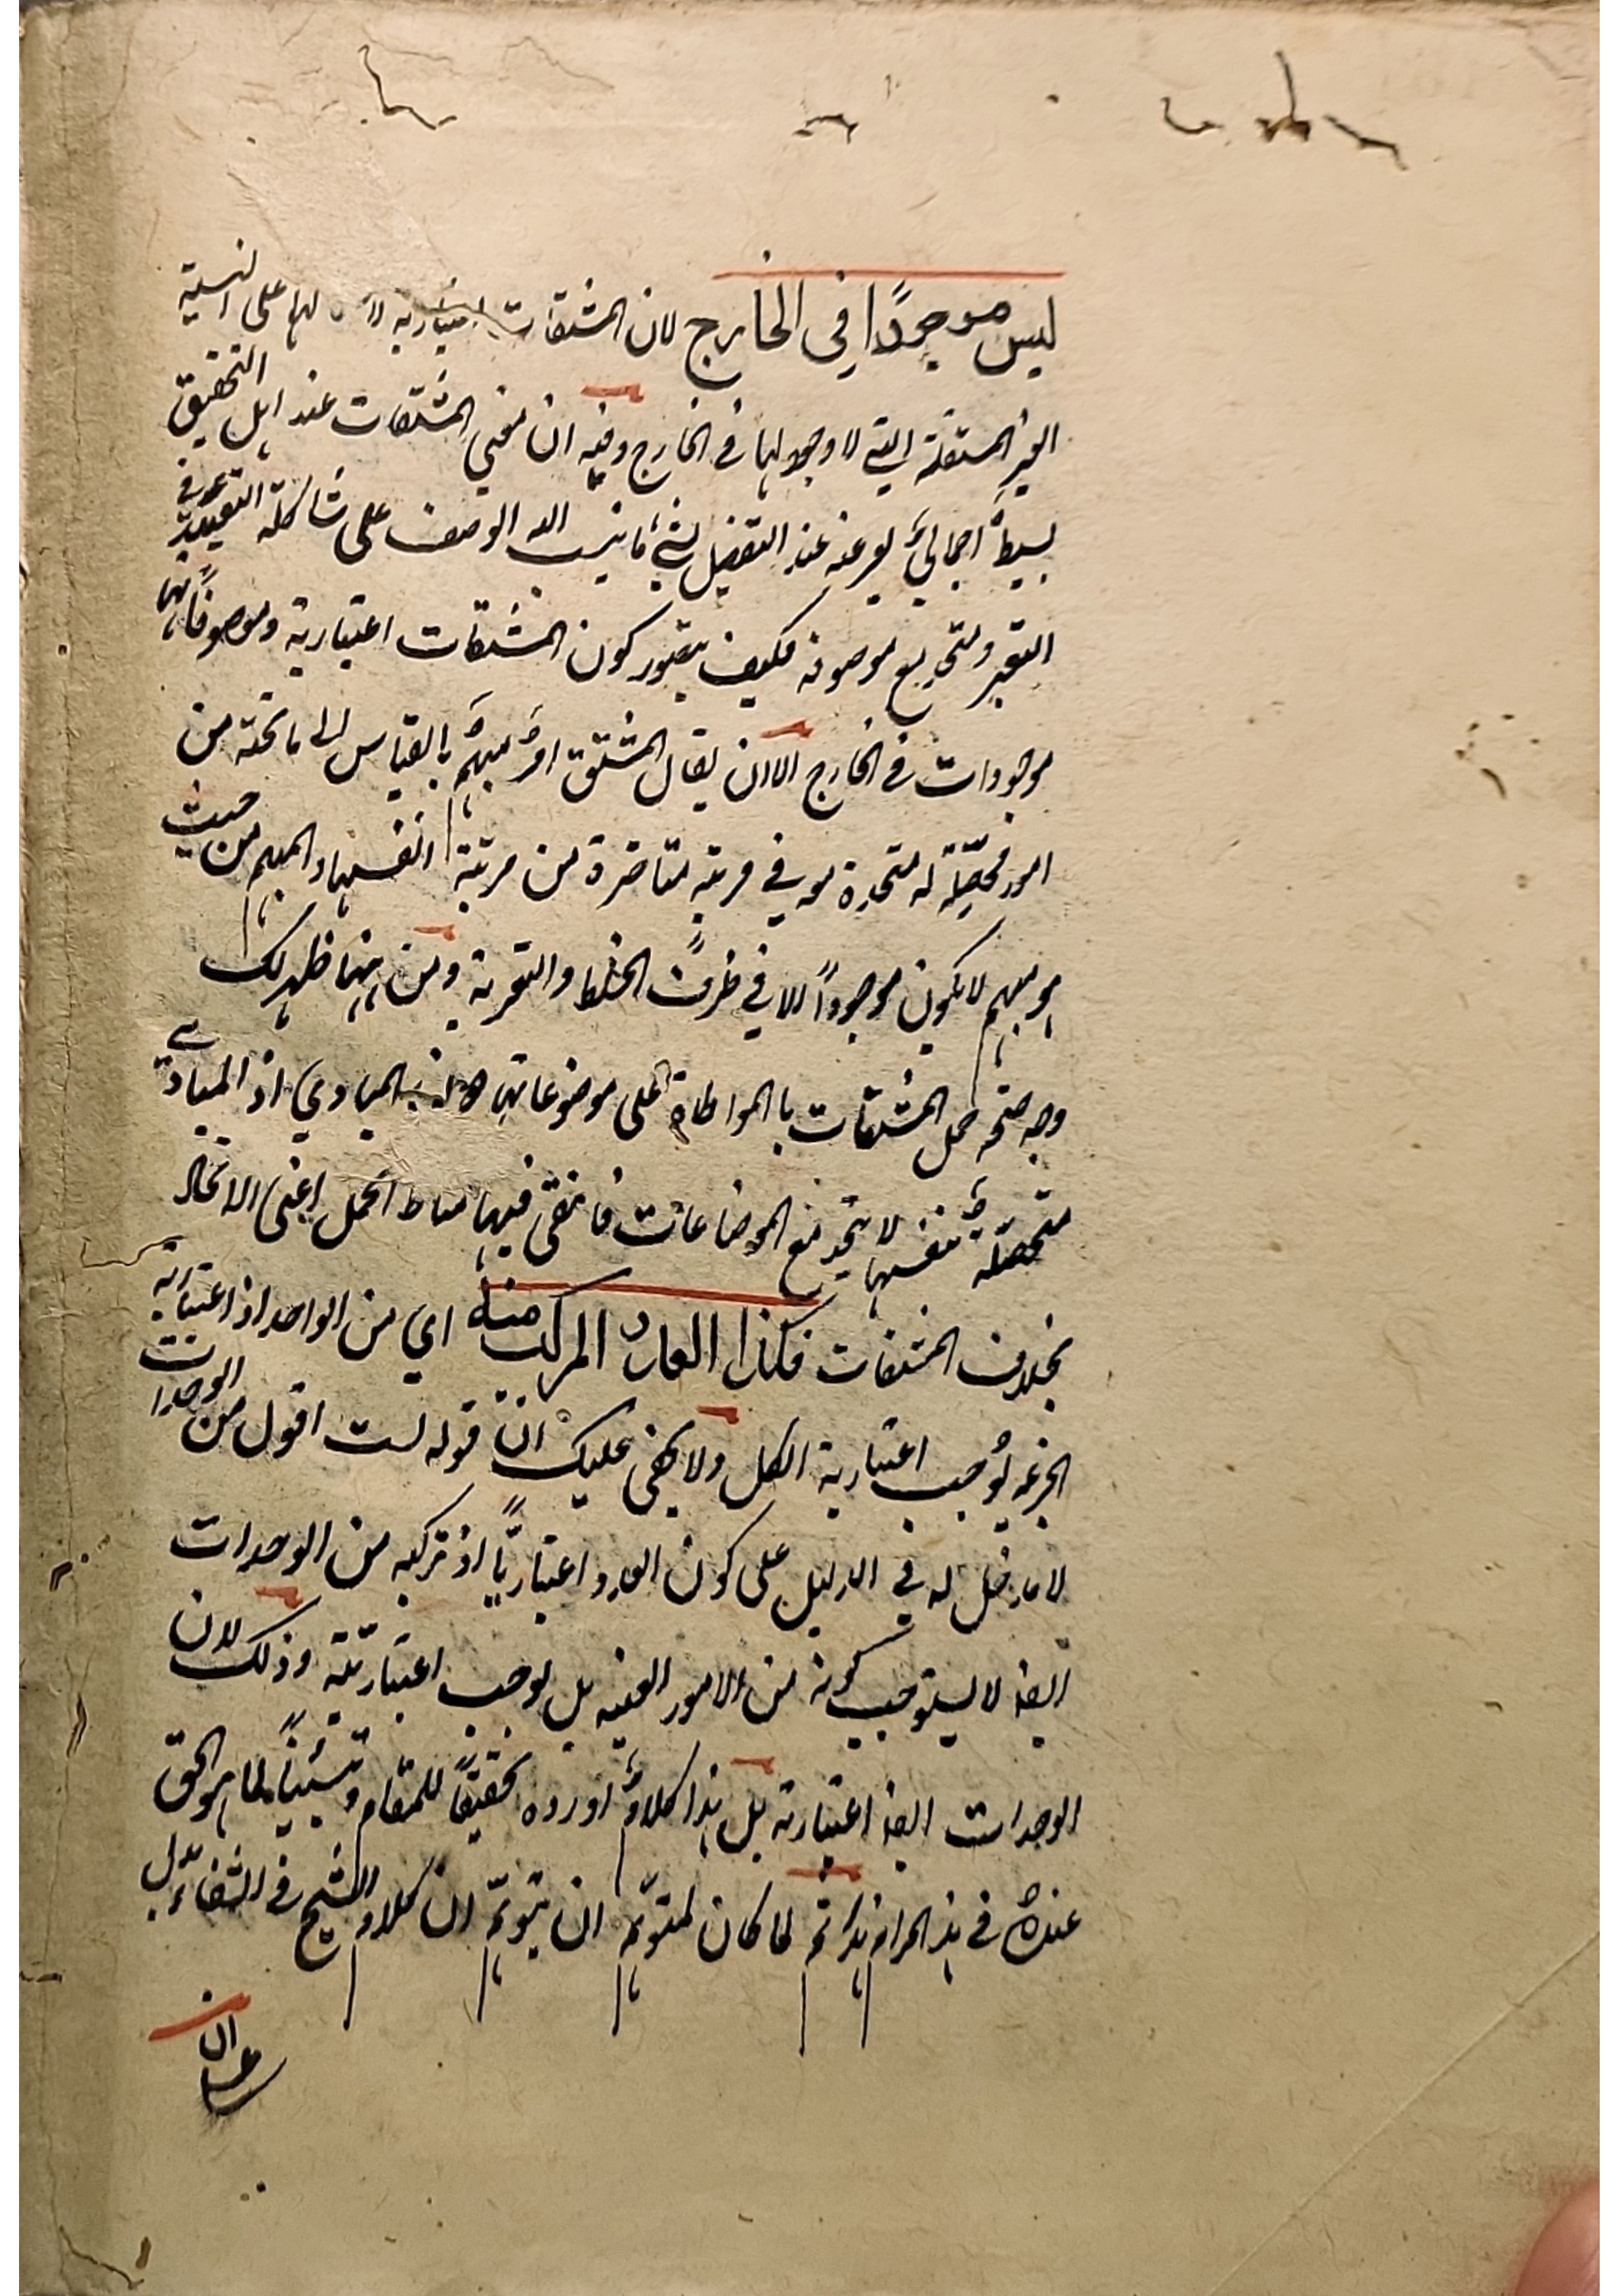 ليس موجودًا في الخارج لان المشتقات اعتبارية لها على النسبة
الغير المستقلة التي لا وجود لها في الخارج وفيه ان معنى المشتقات عند اهل التحقيق
بسيطٌ اجماليٌ يعبر عنه عند التفصيل بشيء ما ينسب اليه الوصف على شاكلة التقييد في
التعبير ومتحد مع موصوفه فكيف يتصور كون المشتقات اعتبارية وموصوفاتها
موجودات في الخارج الا ان يقال المشتق امرٌ مبهمٌ بالقياس الى ما تحته من
امور محصّلة له متحدة معه في مرتبة متاخرة من مرتبة انفسها والمبهم من حيث
هو مبهم لا يكون موجوداً الا في ظرف الخلط والتعرية ومن ههنا ظهر لك
وجه صحة حمل المشتقات بالمواطاة على موضوعاتها المبادي اذ المبادي
متحصلة بنفسها لا تتحد مع الموضوعات فانتفى فيها مناط الحمل اعني الاتحاد
بخلاف المشتقات فكذا العدد المركب منه اي من الواحد اذ اعتبارية
الجزء يوجب اعتبارية الكل ولا يخفى عليك انّ قوله لست اقول من الوحدات
لا مدخل له في الدليل على كون العدد اعتباريّاً اذ تركبه من الوحدات
ايضا لا يستوجب كونه من الامور العينيه بل يوجب اعتباريّته وذلك لان
الوحدات ايضا اعتبارية بل هذا كلامٌ اورده تحقيقاً للمقام وتبييناً لما هو الحق
عنده في هذا المرام هذا ثم لما كان لمتوهّم ان يتوهّم ان كلام الشيخ في الشفاء يدل
على ان